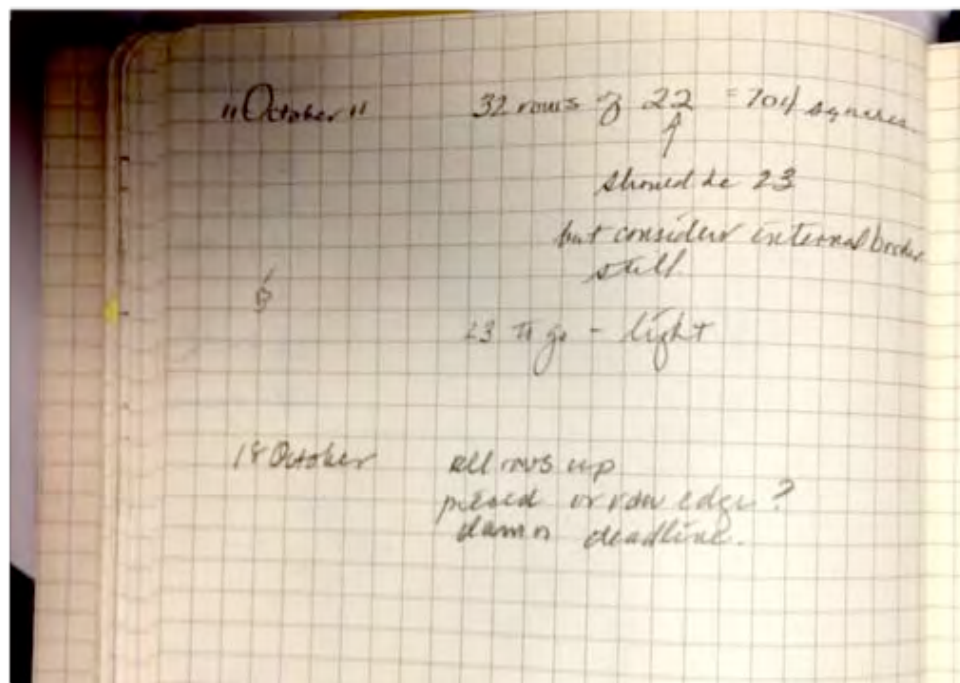 "October" 32 rows of 22 = 704 squares.
should be 23
but consider internal border
still.
23 to go - light
18 October all rows up
pieced or raw edge?
damn deadline.